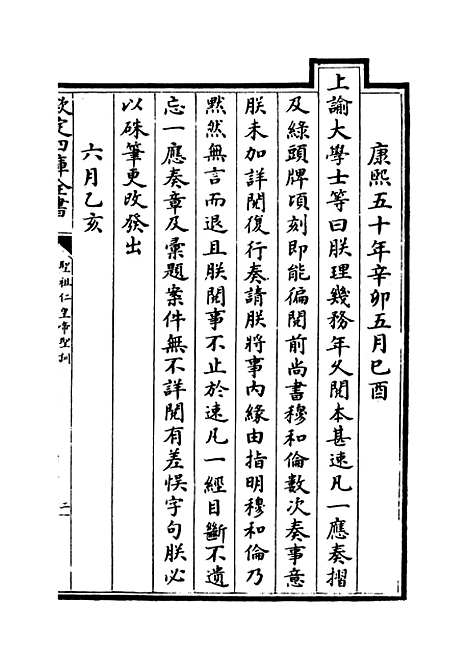 康熙五十年辛卯五月己酉
上諭大學士等曰朕理幾務年久閱本甚速凡一應奏摺
及綠頭牌頃刻即能徧閱前尚書穆和倫數次奏事意
朕未加詳閱復行奏請朕將事內緣由指明穆和倫乃
黙然無言而退且朕閱事不止於速凡一經目斷不遺
忘一應奏章及彚題案件無不詳閱有差悞字句朕必
以硃筆更改發出
六月乙亥
欽定四庫全書
聖祖仁皇帝聖訓
二